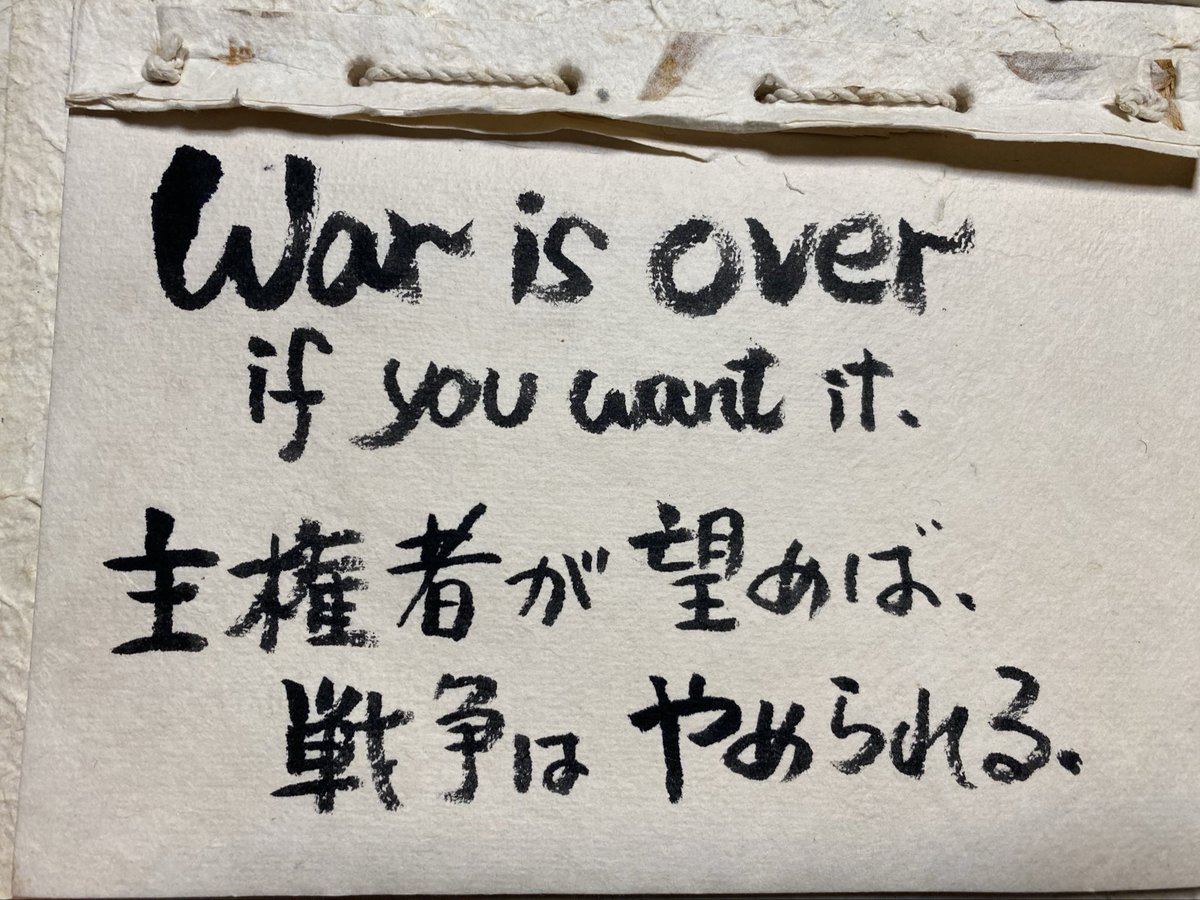 War is over
if you want it.
主権者が望めば、
戦争はやめられる.